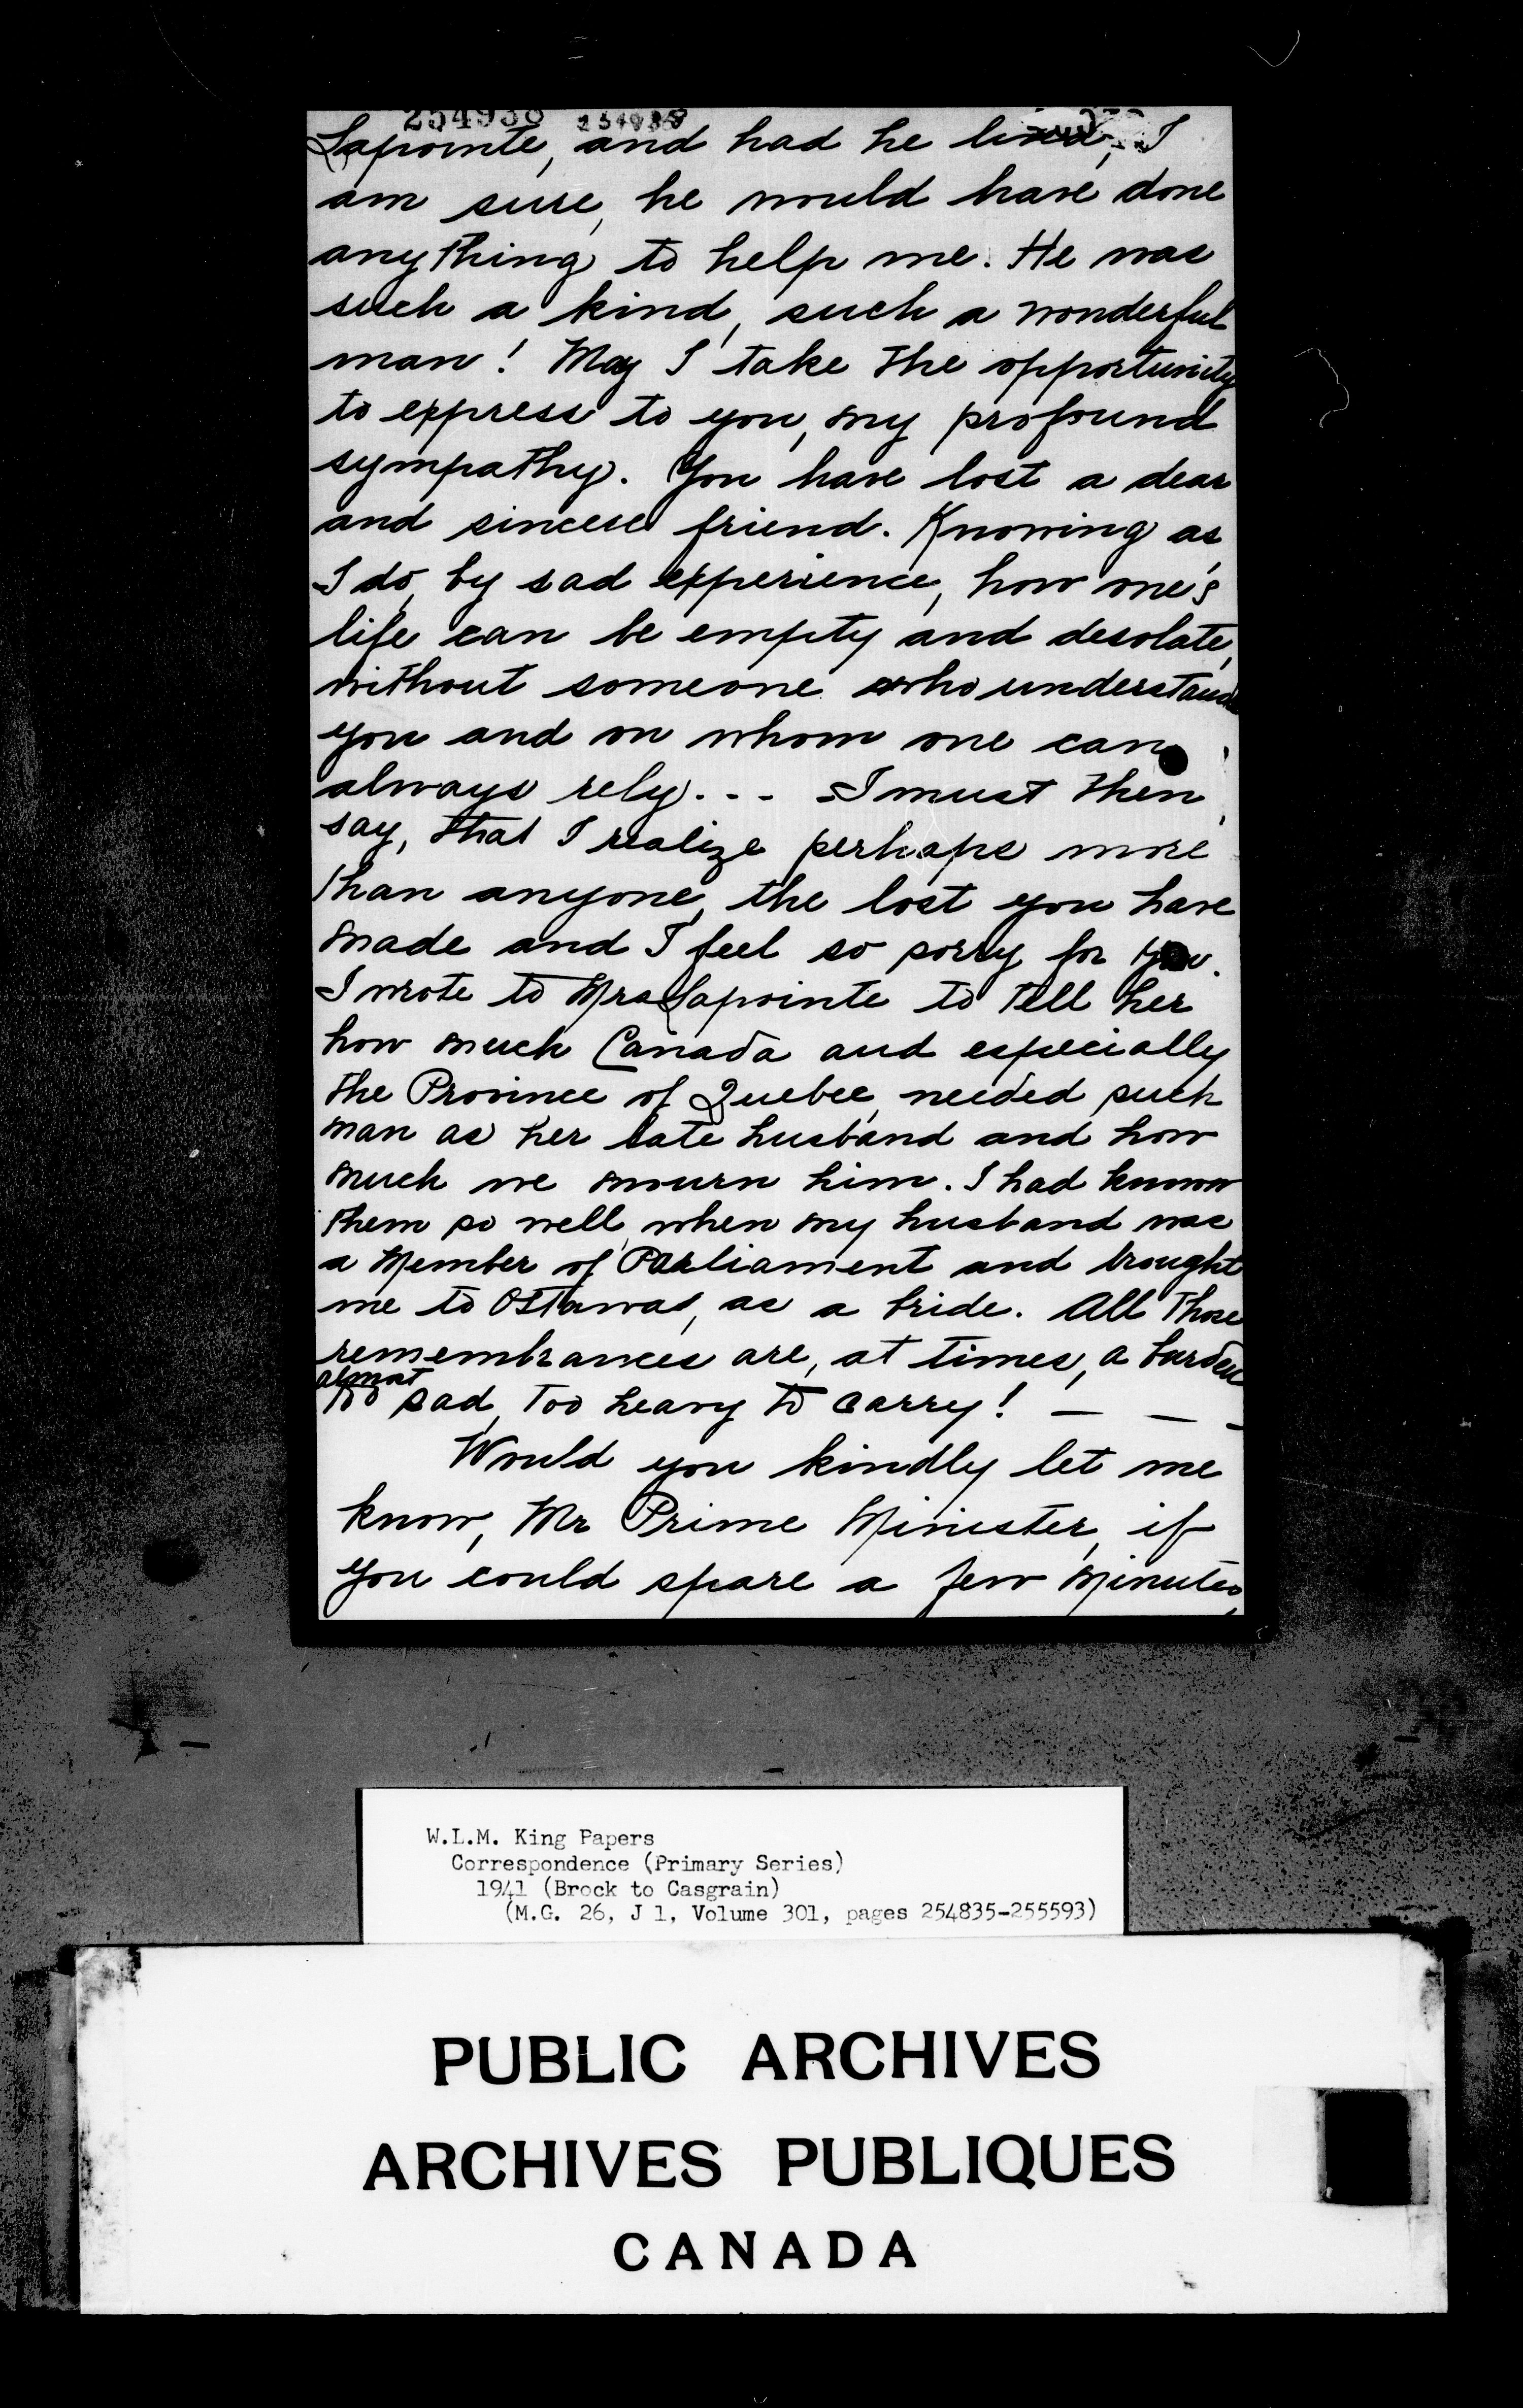 254938 254938
Lapointe, and had he lived, I
am sure, he would have done
anything to help me. He was
such a kind, such a wonderful
man! May I take the opportunity
to express to you, my profound
sympathy. You have lost a dear
and sincere friend. Knowing as
I do, by sad experience, how one's
life can be empty and desolate,
without someone who understand
you and on whom one can
always rely... I must then,
say, that I realize perhaps more
than anyone, the lost you have
made and I feel so sorry for you.
I wrote to Mrs Lapointe to tell her
how much Canada and especially
the Province of Quebec, needed such
man as her late husband and how
much we mourn him. I had known
them so well, when my husband was
a Member of Parliament and brought
me to Ottawa, as a bride. All those
remembrances are, at times, a burden
almost
too sad, too heavy to carry! — — —
Would you kindly let me
know, Mr Prime Minister, if
you could spare a few minutes,
W.L.M. King Papers
Correspondence (Primary Series)
1941 (Brock to Casgrain)
(M.G. 26, J 1, Volume 301, pages 254835-255593)
PUBLIC ARCHIVES
ARCHIVES PUBLIQUES
CANADA